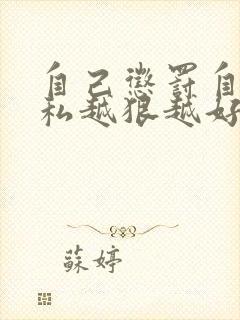 自己懲罰自
私越狠越好
蘇婷